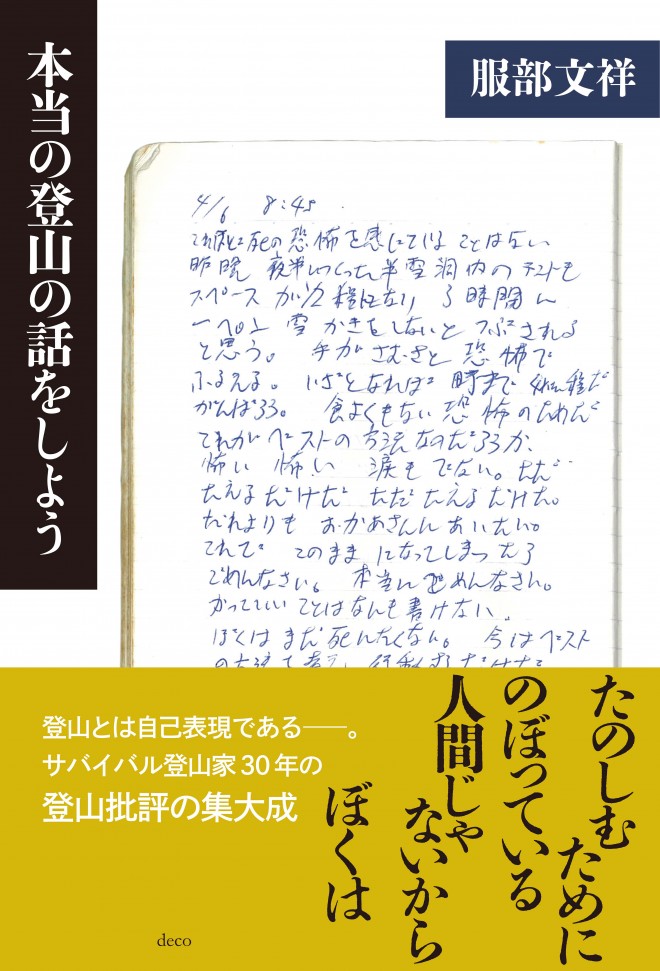 本当の登山の話をしよう
服部文祥
4/6 8:45
これほど死の恐怖を感じていることはない
昨晩 夜半につくった半雪洞内のテントも
スペースが1/2程になり 3時間に
一ぺん 雪かきをしないと つぶされる
と思う。 手がさむさと恐怖で
ふるえる。 いざとなれば 時まで
がんばろう。 食よくもない 恐怖のためだ
これがベストの方法なのだろうか、
怖い 怖い 涙もでない。ただ
たえるだけだ ただたえるだけだ。
だれよりも おかあさんにあいたい。
これで このまま になってしまったら
ごめんなさい。 本当にごめんなさい。
かっていいことはなんも書けない。
ぼくはまだ死にたくない。 今はベスト
たのしむために
のぼっている
人間じゃ
ないから
ぼくは
登山とは自己表現である──。
サバイバル登山家30年の
登山批評の集大成
deco